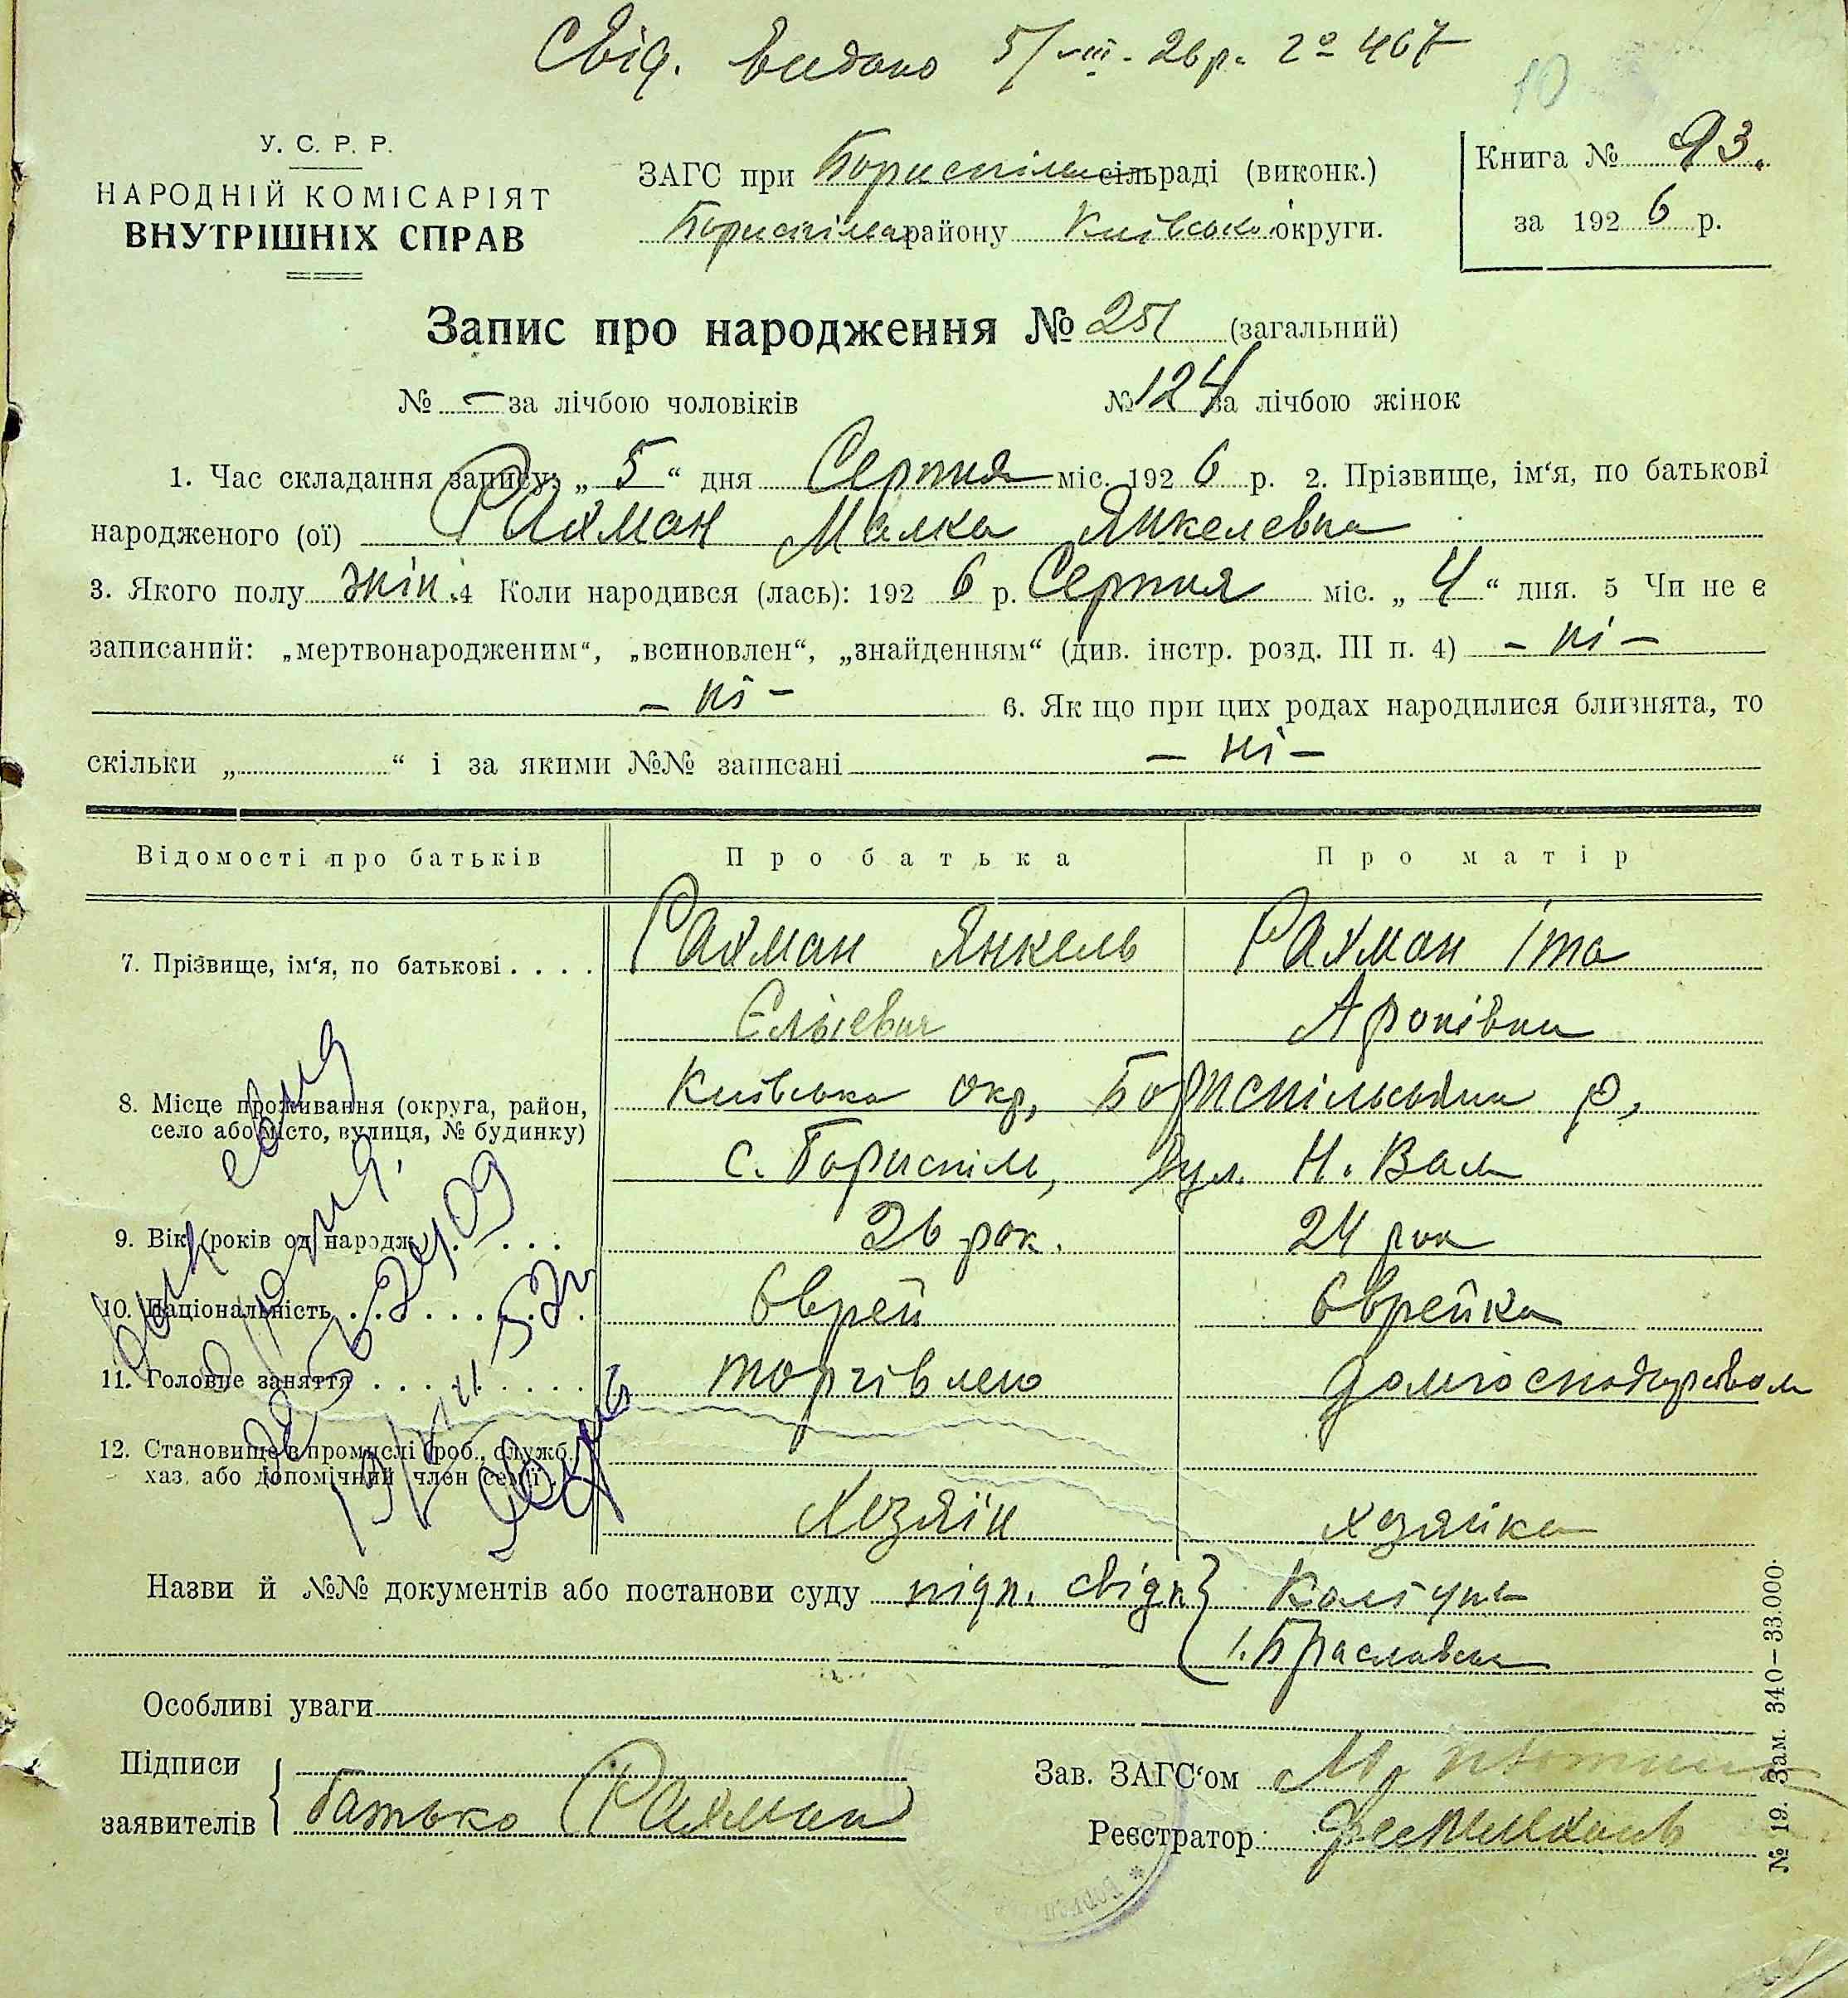 Свід. видано 5/VIII-26 р. № 467
10
У. С. Р. Р.
НАРОДНІЙ КОМІСАРІЯТ
ВНУТРІШНІХ СПРАВ
ЗАГС при Бориспільськ сільраді (виконк.)
району Київської округи.
Книга № 93.
за 1926 р.
Запис про народження № 251 (загальний)
№ — за лічбою чоловіків
№ 124 за лічбою жінок
1. Час складання запису: „5“ дня Серпня міс. 1926 р. 2. Прізвище, ім‘я, по батькові
народженого (ої) Рахман Малка Янкелевна
3. Якого полу жін. 4 Коли народився (лась): 1926 р. Серпня міс. „4“ дня. 5 Чи не є
записаний: „мертвонародженим“, „всиновлен“, „знайденням“ (див. інстр. розд. III п. 4) – ні –
– ні – 6. Як що при цих родах народилися близнята, то
скільки „ “ і за якими №№ записані – ні –
Відомості про батьків Про батька Про матір
7. Прізвище, ім‘я, по батькові . . . . Рахман Янкель Рахман Іта
Аронівна
8. Місце проживання (округа, район, Київська окр, Бориспільський р,
село або місто, вулиця, № будинку) с. Бориспіль, вул. Н. Вал
9. Вік (років од народж.) . . . 26 рок. 24 рок
10. Національність . . . Єврей Єврейка
11. Головне заняття . . . торгівлею домгосподарством
12. Становище в промислі (роб., служб.
хаз. або допомічний член сем‘ї)
Хозяїн хозяйка
Назви й №№ документів або постанови суду підп. свідк
І. Браславськ
Особливі уваги
Підписи
заявителів батько Рахман
Зав. ЗАГС‘ом
Реєстратор
№ 19. Зам. 340–33.000.